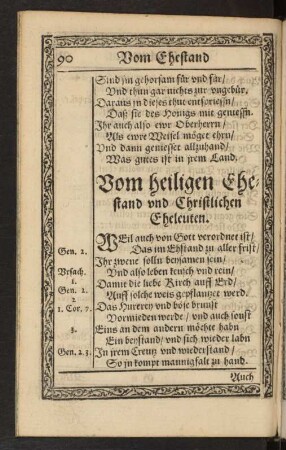 90 Vom Ehestand
Sind jm gehorsam für vnd für/
Vnd thun gar nichts zur vngebür/
Daraus jn dieses thut entspriessn/
Daß sie des Honigs mit geniessn.
Ihr auch also ewr Oberherrn/
Als ewre Weisel möget ehrn/
Vnd dann geniesset allzuhand/
Was gutes ist in jrem Land.
Vom heiligen Ehe-
stand vnd Christlichen
Eheleuten.
WEil auch von Gott verordnet ist/
Gen. 2. Das im Ehstand zu aller frist/
Ihr zwene solln beysamen sein/
Vrsach. Vnd also leben keusch vnd rein/
1. Damit die liebe Kirch auff Erd/
Gen. 2. Auff solche weis gepflantzet werd.
2
1. Cor. 7. Das Hurerey vnd böse brunst
Vormieden werde/ vnd auch sonst
3. Eins an dem andern möchte habn
Ein beystand/ vnd sich wieder labn
Gen. 2. 3. In jrem Creutz vnd wiederstand/
So jn kompt mannigfalt zu hand.
Auch